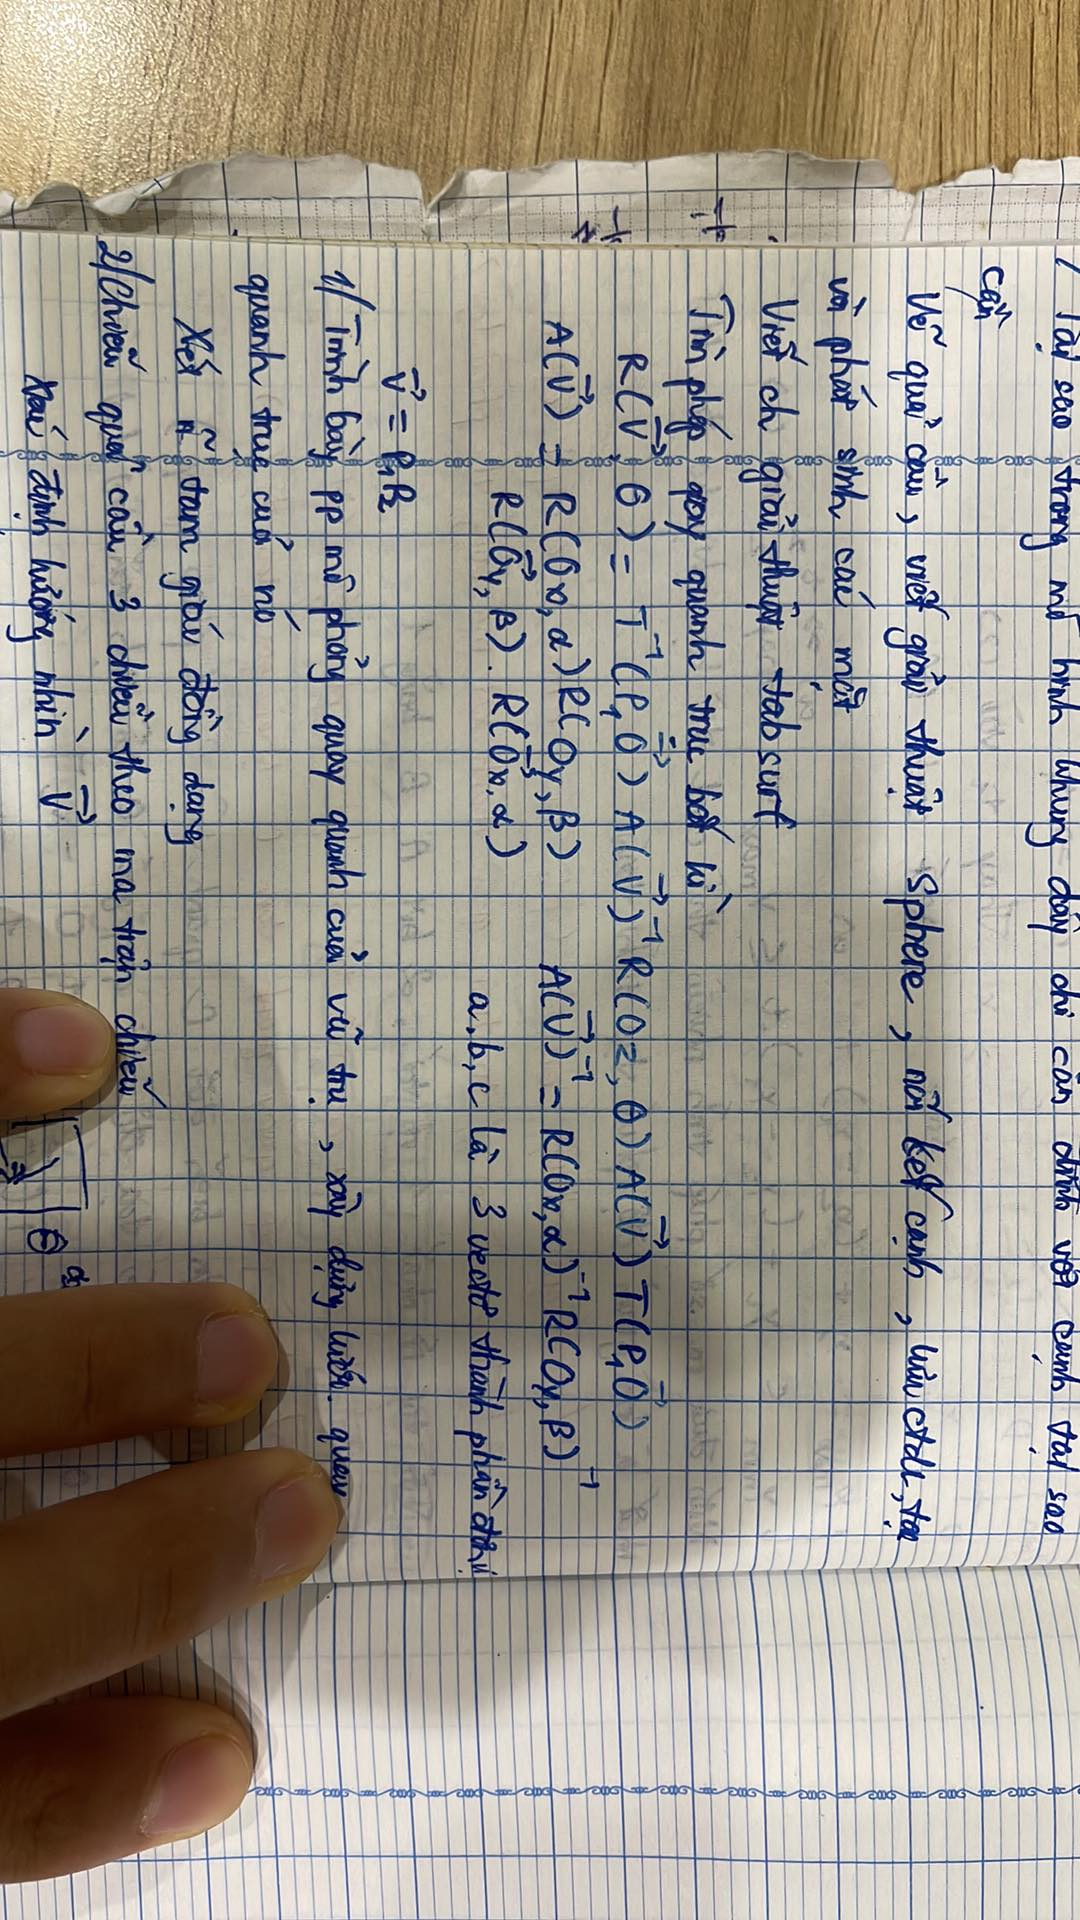 1 Tại sao trong mô hình khung dây chỉ cần đỉnh với cạnh tại sao
cần
Vẽ quả cầu, viết giải thuật Sphere, nối kết cạnh, lưu ctdl, tọa
và phát sinh các mặt
Viết ch giải thuật tabsurf
Tìm phép quay quanh trục bất kì
R(V⃗, θ) = T⁻¹(P₁O⃗) A(V⃗)⁻¹ R(Oz, θ) A(V⃗) T(P₁O⃗)
A(V⃗) = R(Ox, α) R(Oy, β) A(V⃗)⁻¹ = R(Ox, α)⁻¹ R(Oy, β)⁻¹
R(Oy, β). R(Ox, α) a, b, c là 3 vectơ thành phần
V⃗ = P₁P₂
1/ Trình bày pp mô phỏng quay quanh của vũ trụ, xây dựng
quanh trục của nó
Xét tam giác đồng dạng
2/ Chiếu quả cầu 3 chiều theo ma trận chiếu
Xác định hướng nhìn V⃗